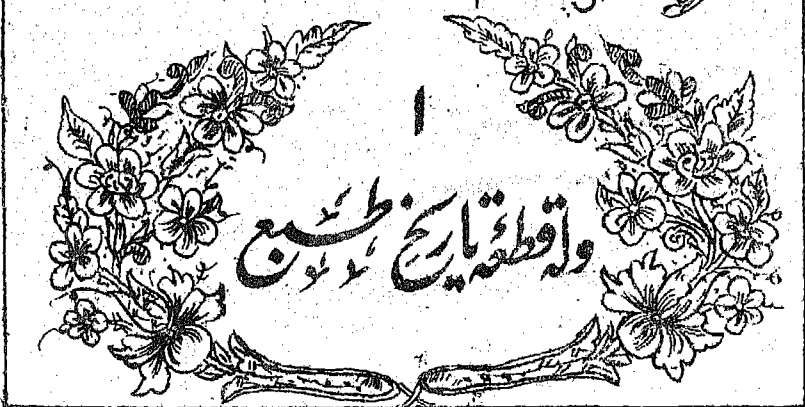 ۱
وله قطعهٔ تاریخ طبع